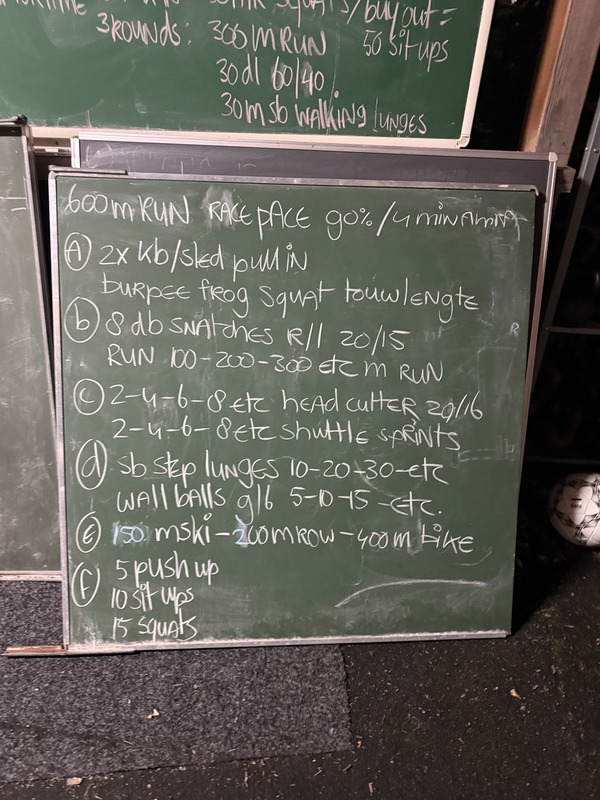 squats/buy out =
3 ROUNDS: 300m RUN 50 sit ups
30 dl 60/40
30m sb walking lunges
600m RUN RACE pACE 90% / 4 min AmRAp
A 2x Kb/sled pull in
burpee frog squat touwlengte
b 8 db snatches R/l 20/15
RUN 100-200-300 etc m RUN
C 2-4-6-8 etc headcutter 20/16
2-4-6-8 etc shuttle sprints
d sb step lunges 10-20-30-etc
wall balls 9/6 5-10-15-etc.
E 150 m ski - 200m ROW - 400m bike
f 5 push up
10 sit ups
15 squats